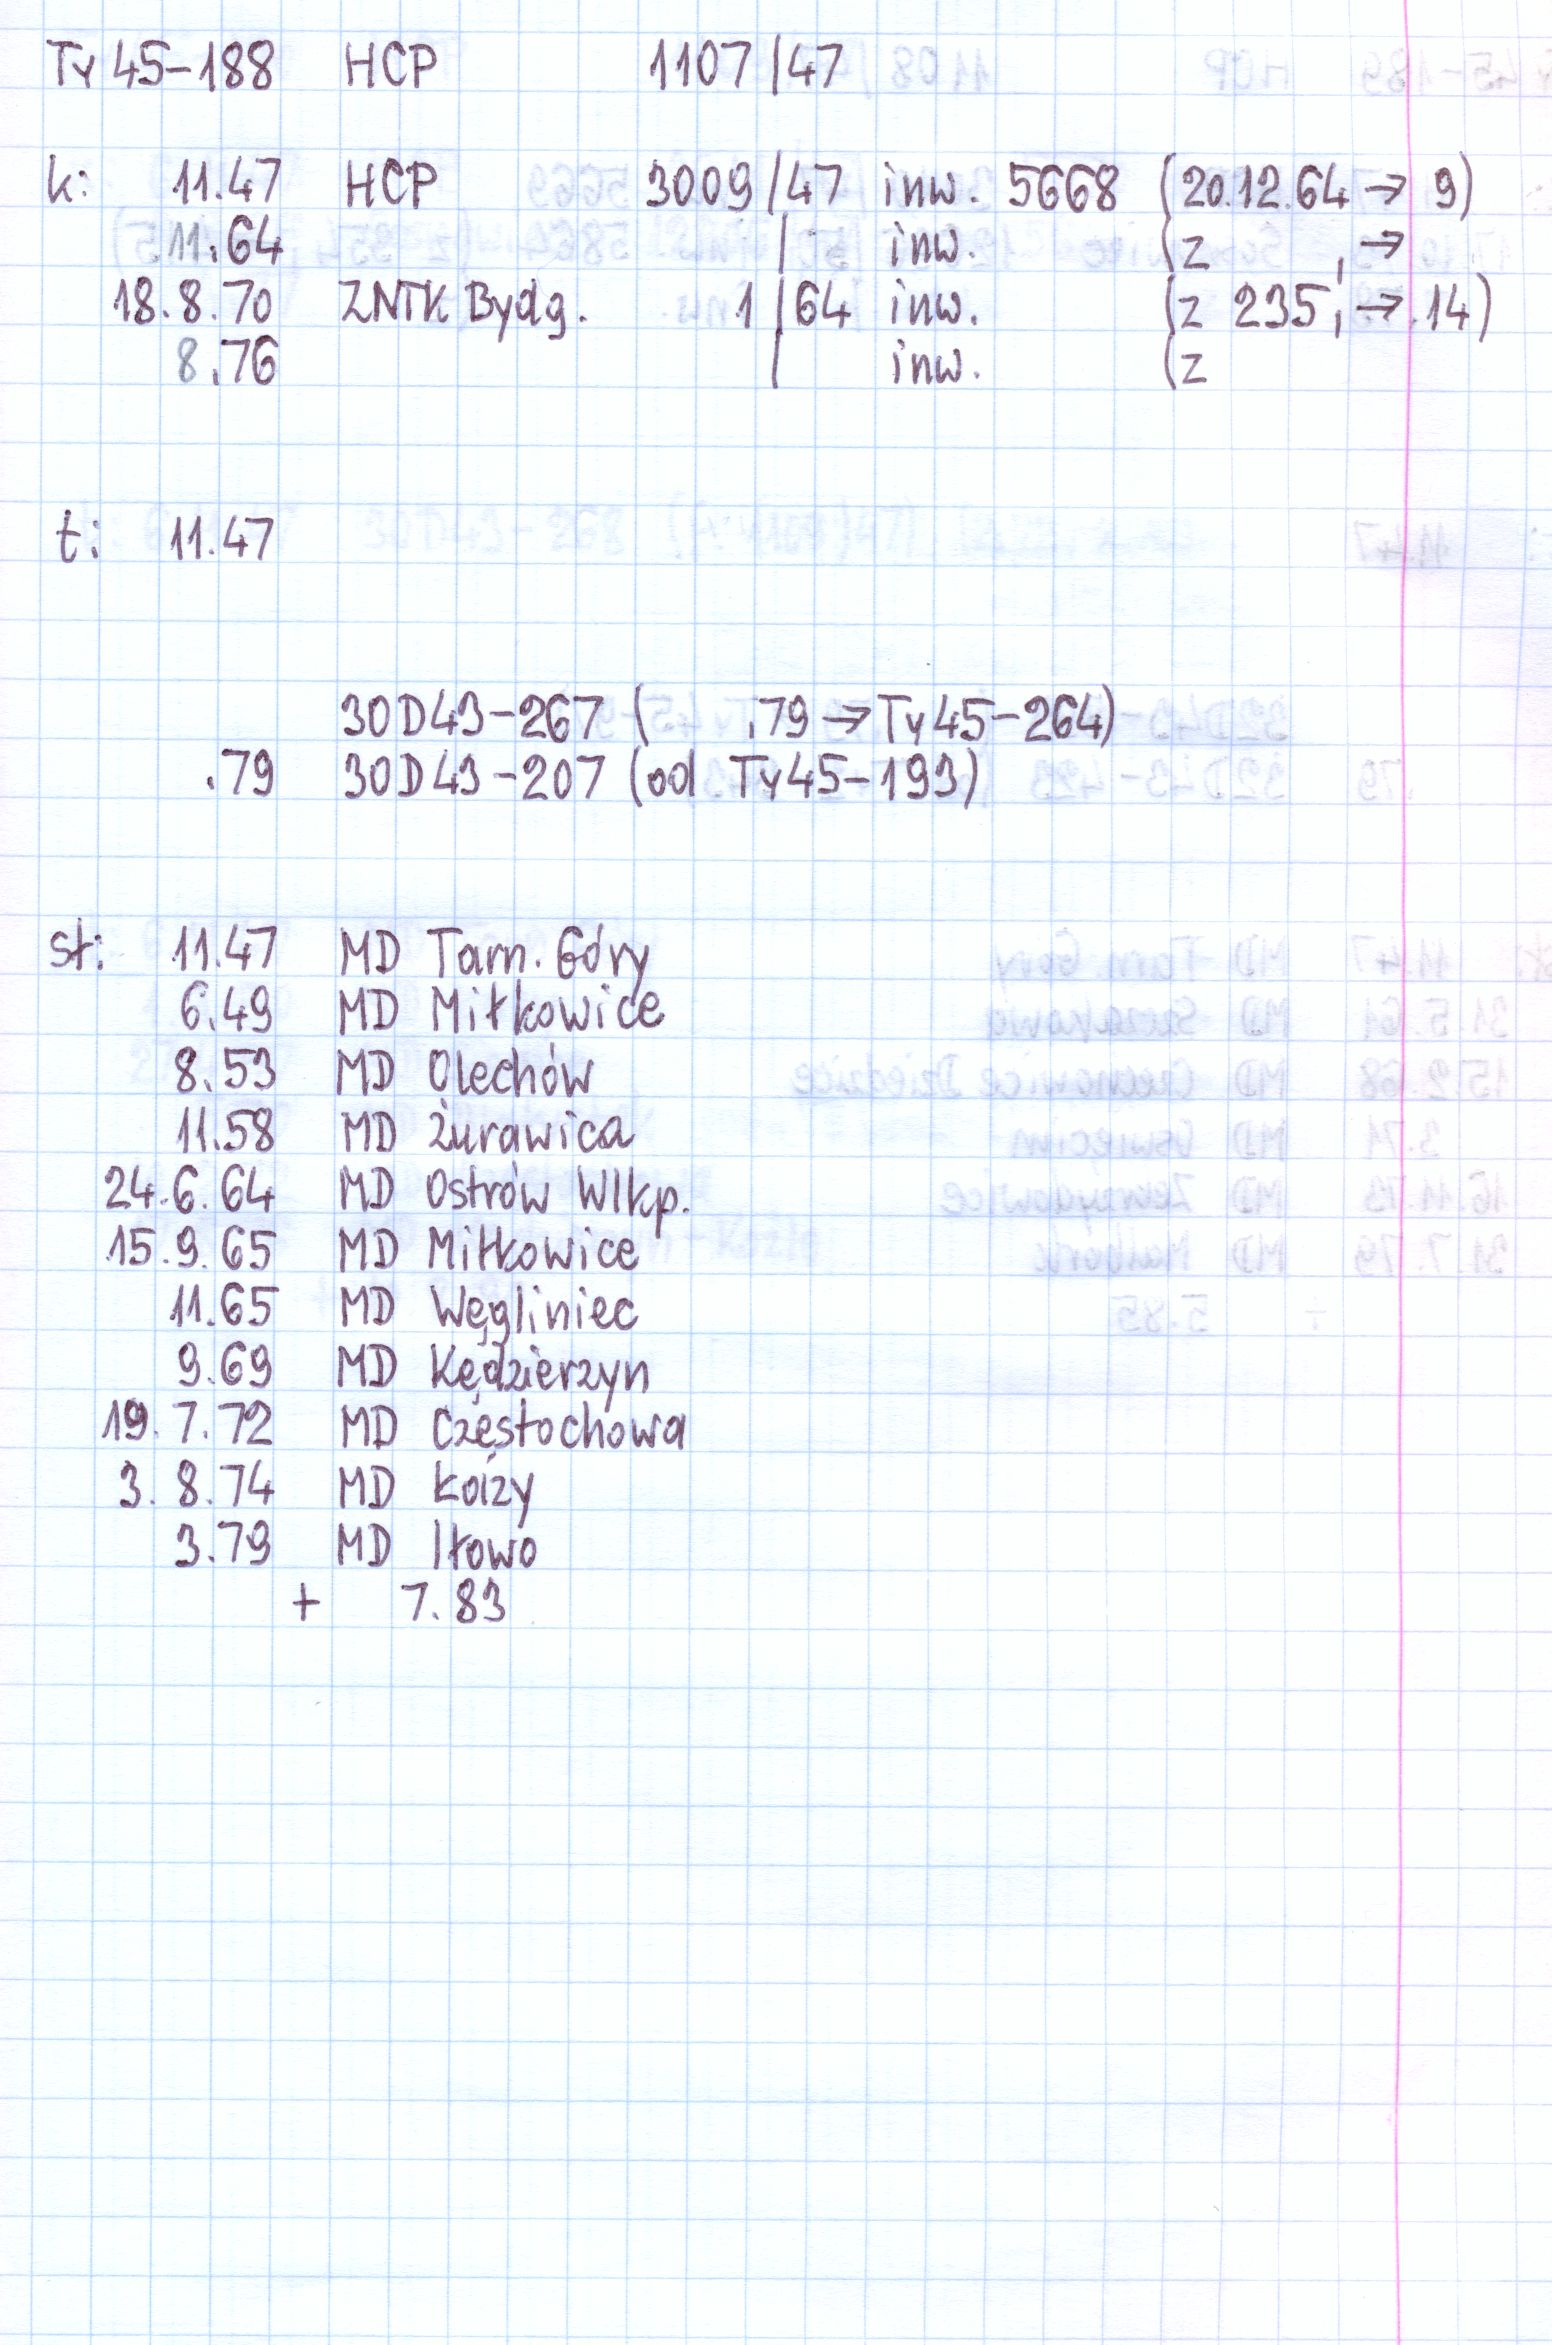 Ty45-188 HCP 1107/47
k: 11.47 HCP 3009/47 inw. 5668 (20.12.64 → 9)
11.64 / inw. (z , →
18.8.70 ZNTK Bydg. 1/64 inw. (z 235, → 14)
8.76 / inw. (z
t: 11.47
30D43-267 ( .79 → Ty45-264)
.79 30D43-207 (od Ty45-193)
st: 11.47 MD Tarn. Góry
6.49 MD Miłkowice
8.53 MD Olechów
11.58 MD Żurawica
24.6.64 MD Ostrów Wlkp.
15.9.65 MD Miłkowice
11.65 MD Węgliniec
9.69 MD Kędzierzyn
19.7.72 MD Częstochowa
3.8.74 MD Łazy
3.79 MD Iłowo
+ 7.83